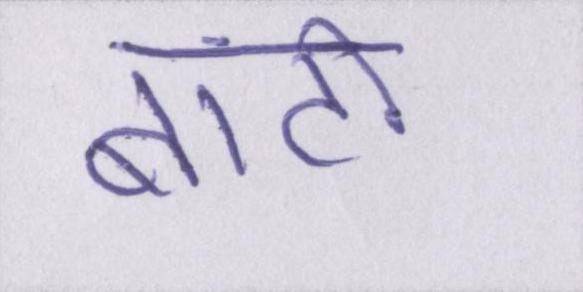 बांटी